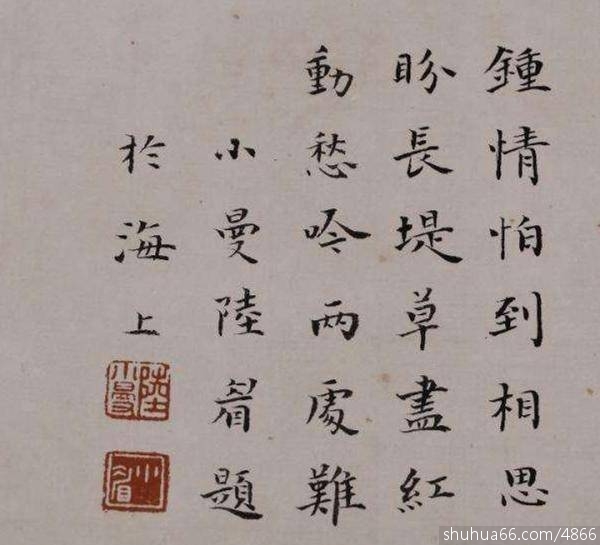 鍾情怕到相思
盼長堤草盡紅
動愁吟兩處難
小曼陸眉題
於海上
陸小曼
shuhua66.com/4866